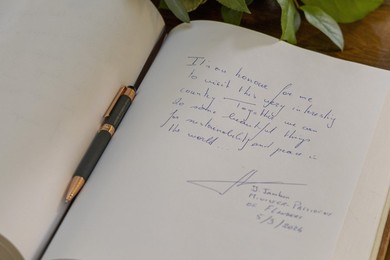 It is an honour for me
to visit this very interesting
country. Together we can
do some beautiful things
for sustainability and peace in
the world...
J. Jambon
Minister-President
of Flanders
5/3/2024